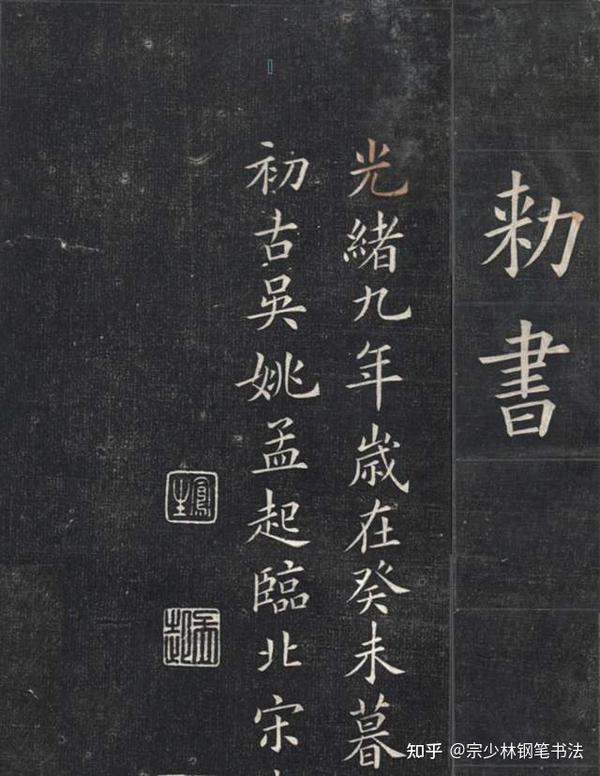 勑書
光緒九年歲在癸未暮
初古吳姚孟起臨北宋
鳳生
孟起
知乎 @宗少林钢笔书法